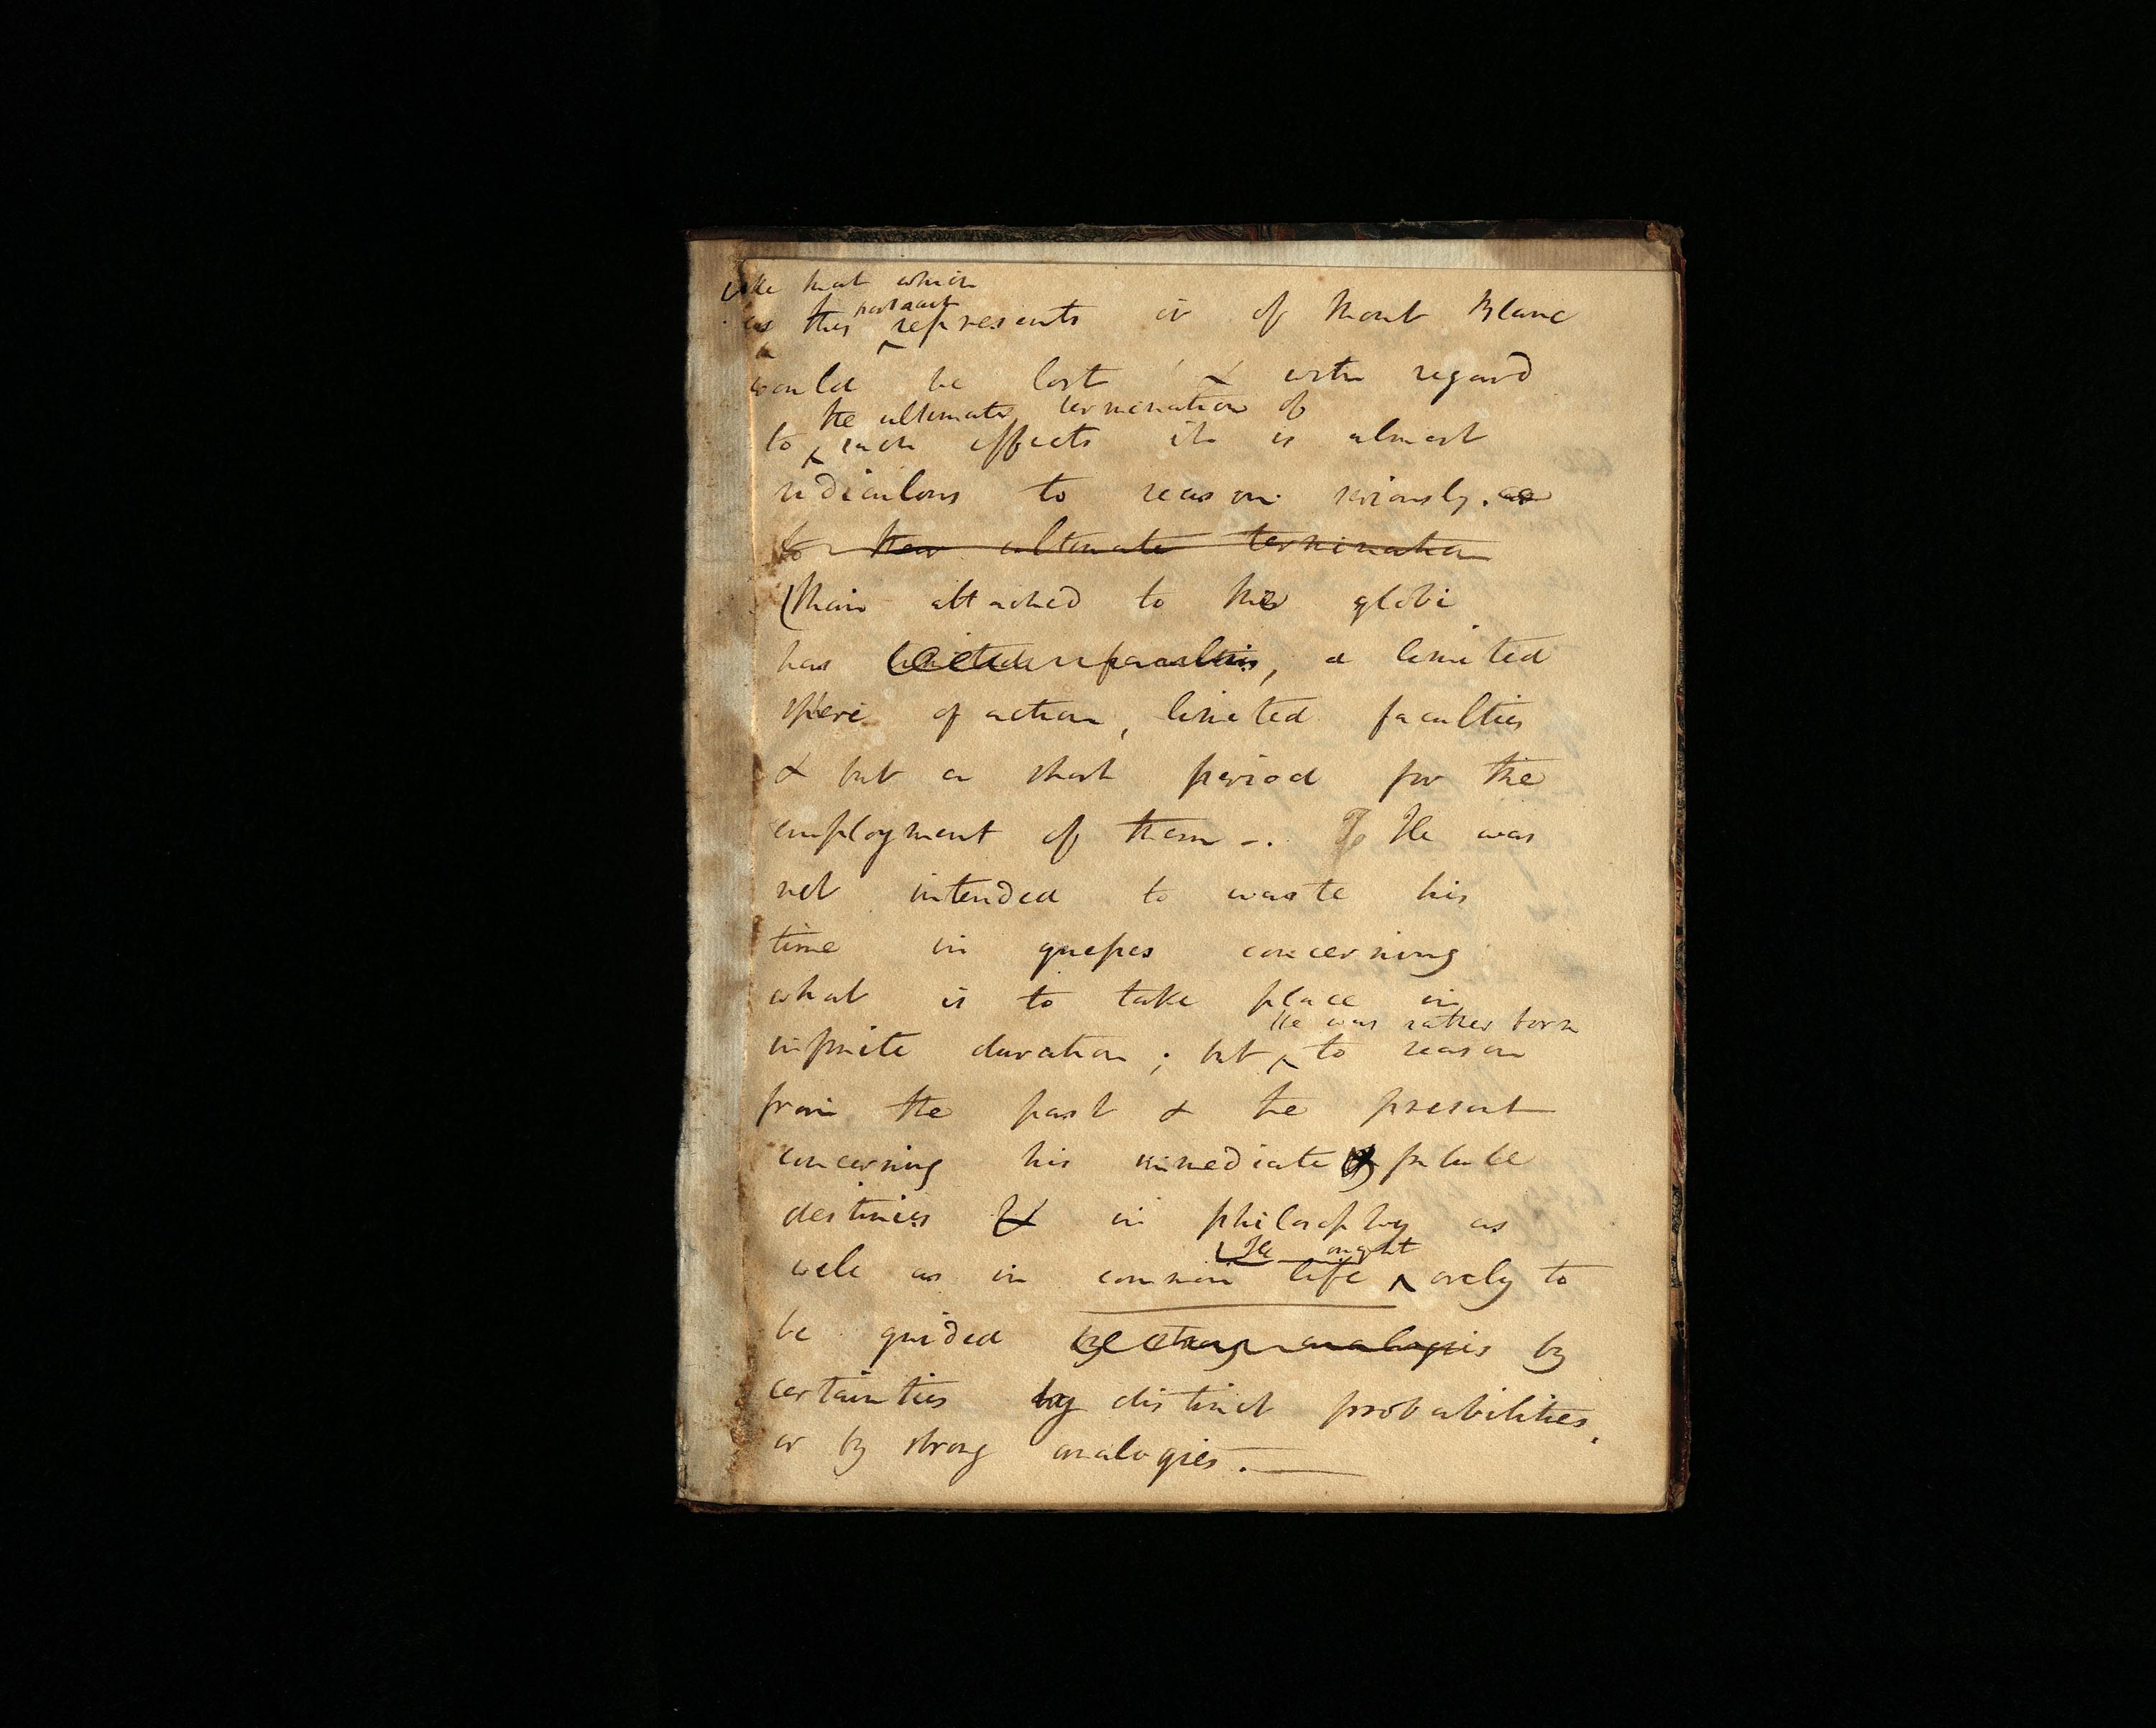 like that which
portrait
as this represents or of Mont Blanc
would be lost & with regard
the ultimate termination of
to such effects it is almost
ridiculous to reason seriously. as
to their ultimate termination
Man attached to this globe
has limited faculties, a limited
sphere of action, limited faculties
& but a short period for the
employment of them -. He was
not intended to waste his
time in guesses concerning
what is to take place in
He was rather born
infinite duration; but to reason
from the past & the present
concerning his immediate & future
destinies & in philosophy as
He ought
well as in common life only to
be guided by strong analogies by
certainties by distinct probabilities,
or by strong analogies. —